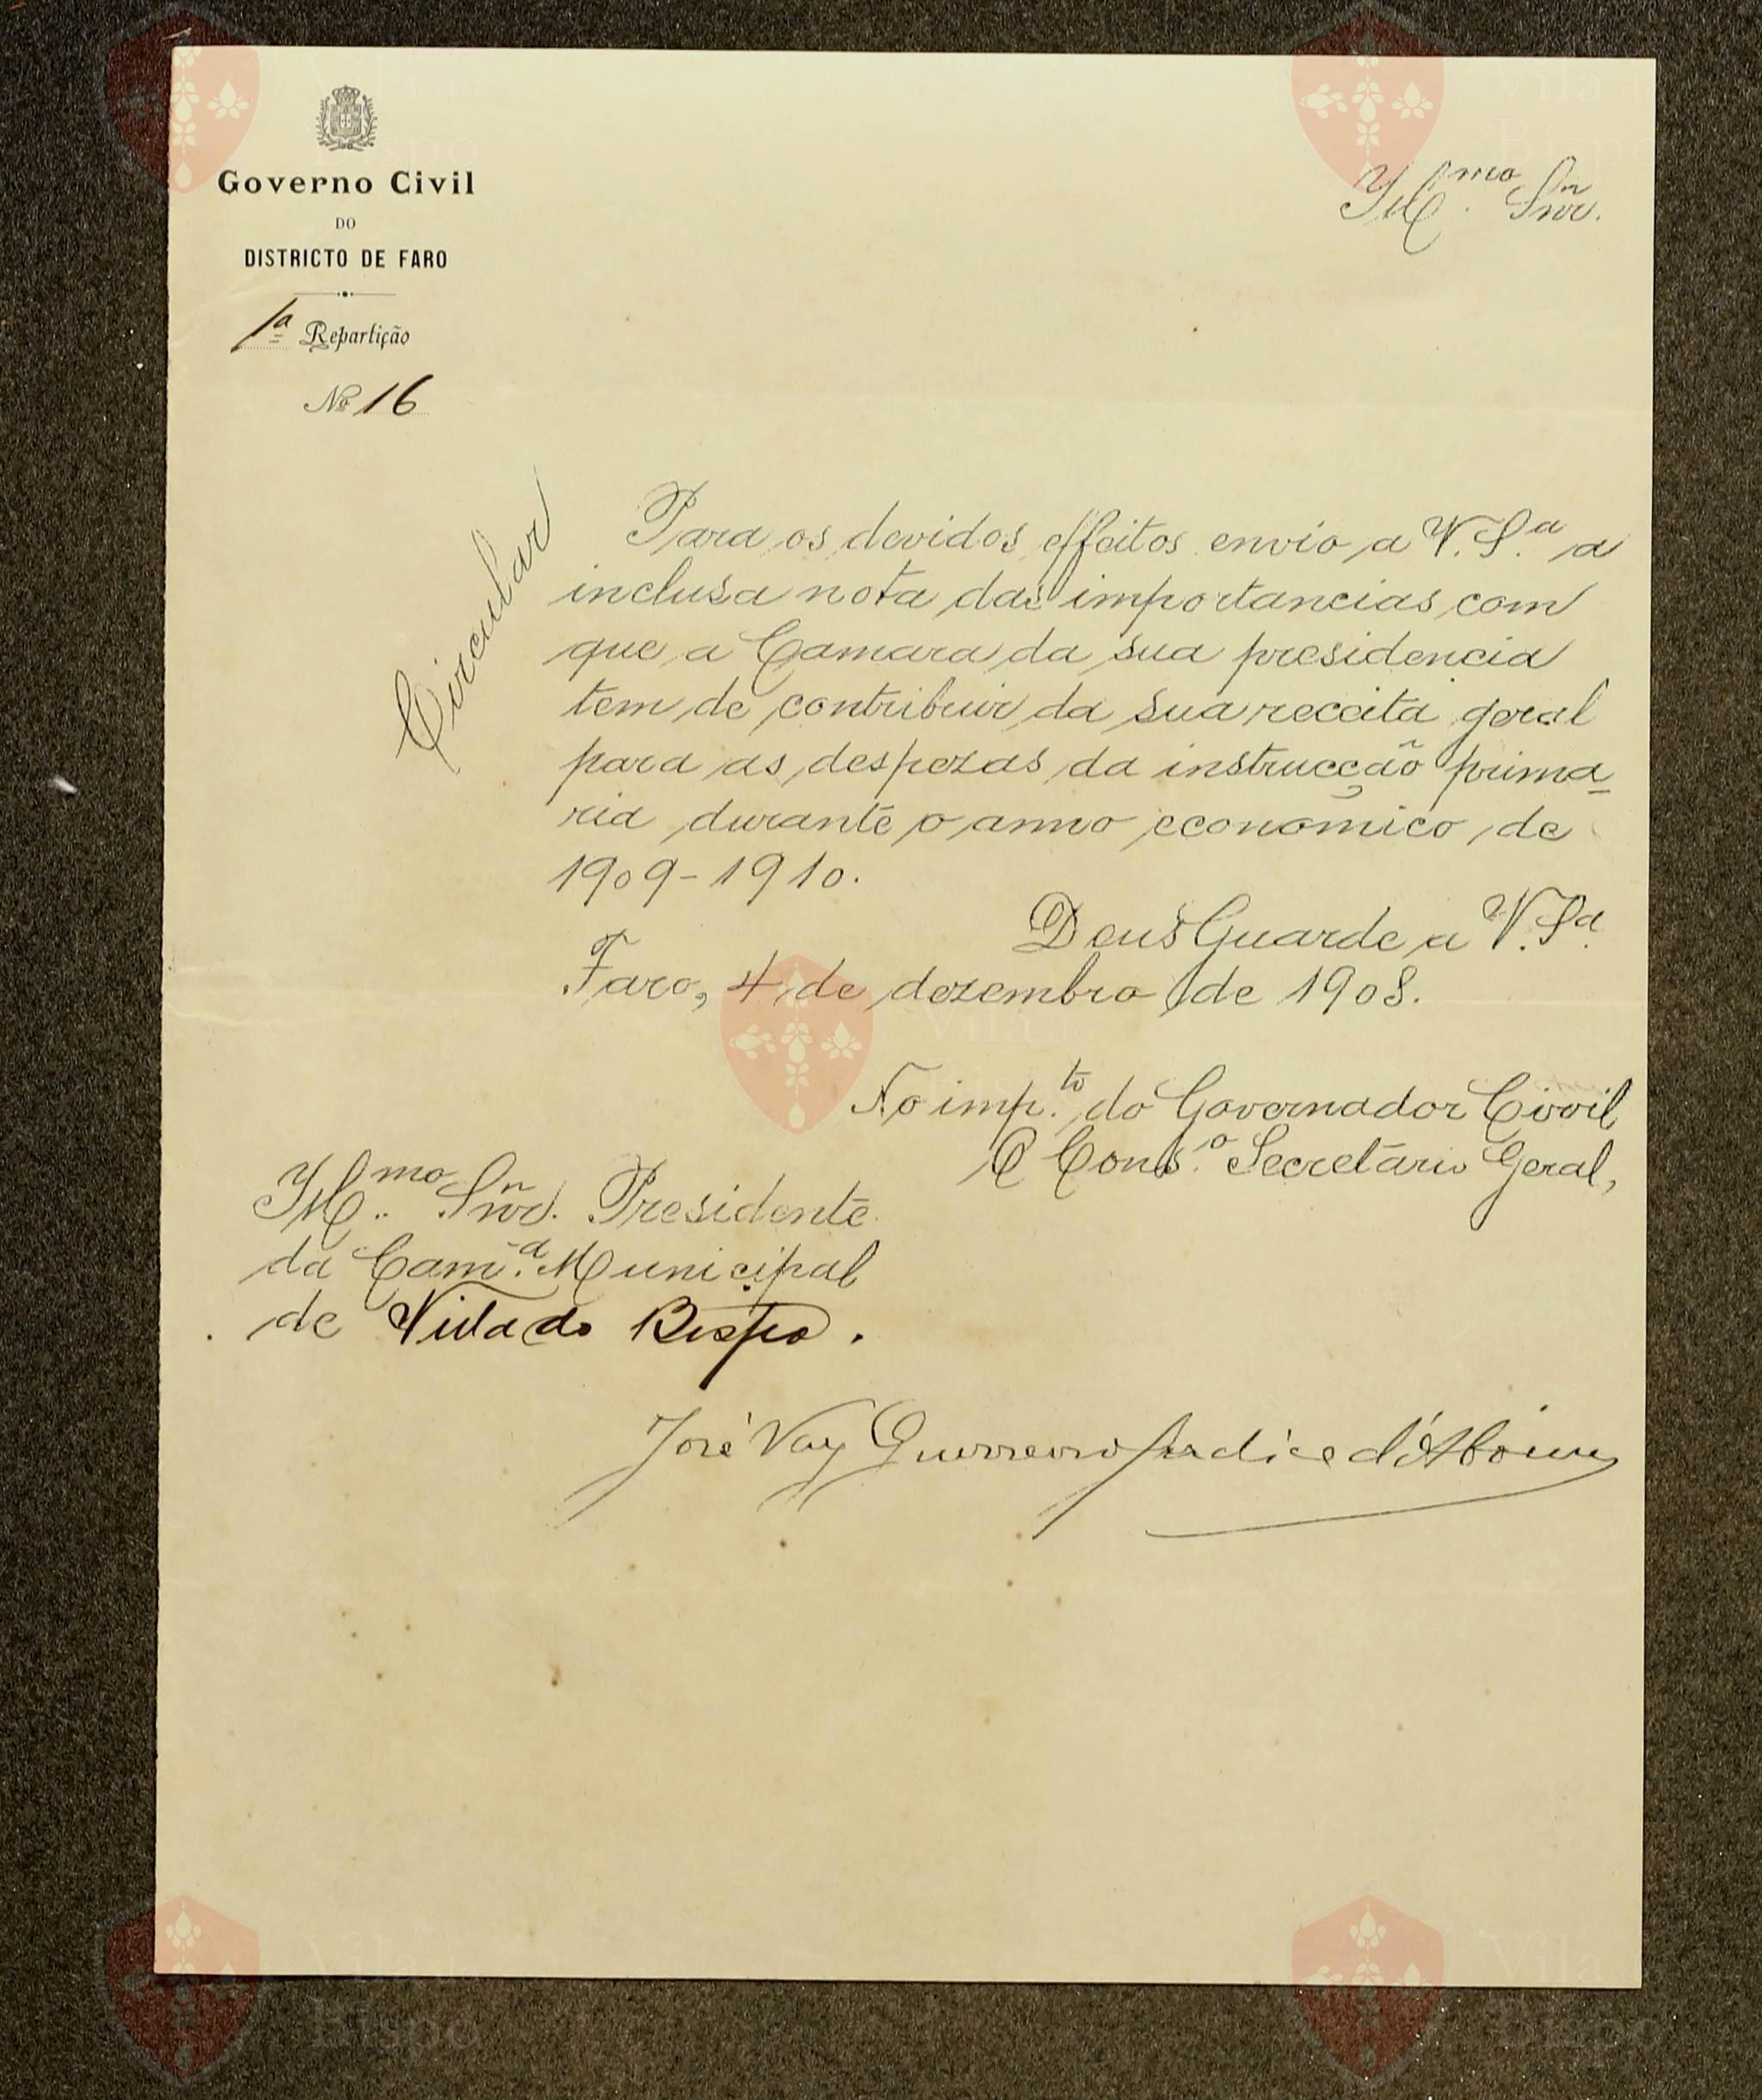 Governo Civil
DO
DISTRICTO DE FARO
1ª Repartição
Nº 16
Illmo. Snr.
Circular
Para os devidos effeitos envio a V. Sª a
inclusa nota das importancias com
que a Camara da sua presidencia
tem de contribuir da sua receita geral
para as despezas da instrucção prima-
ria durante o anno economico de
1909-1910.
Deus Guarde a V. Sª.
Faro, 4 de dezembro de 1908.
No imp.to do Governador Civil
O Cons.o Secretario Geral,
Illmo. Snr. Presidente
da Cam.a Municipal
de Villa do Bispo.
José Vaz Guerreiro Judice d'Aboim
Vila do
Bispo